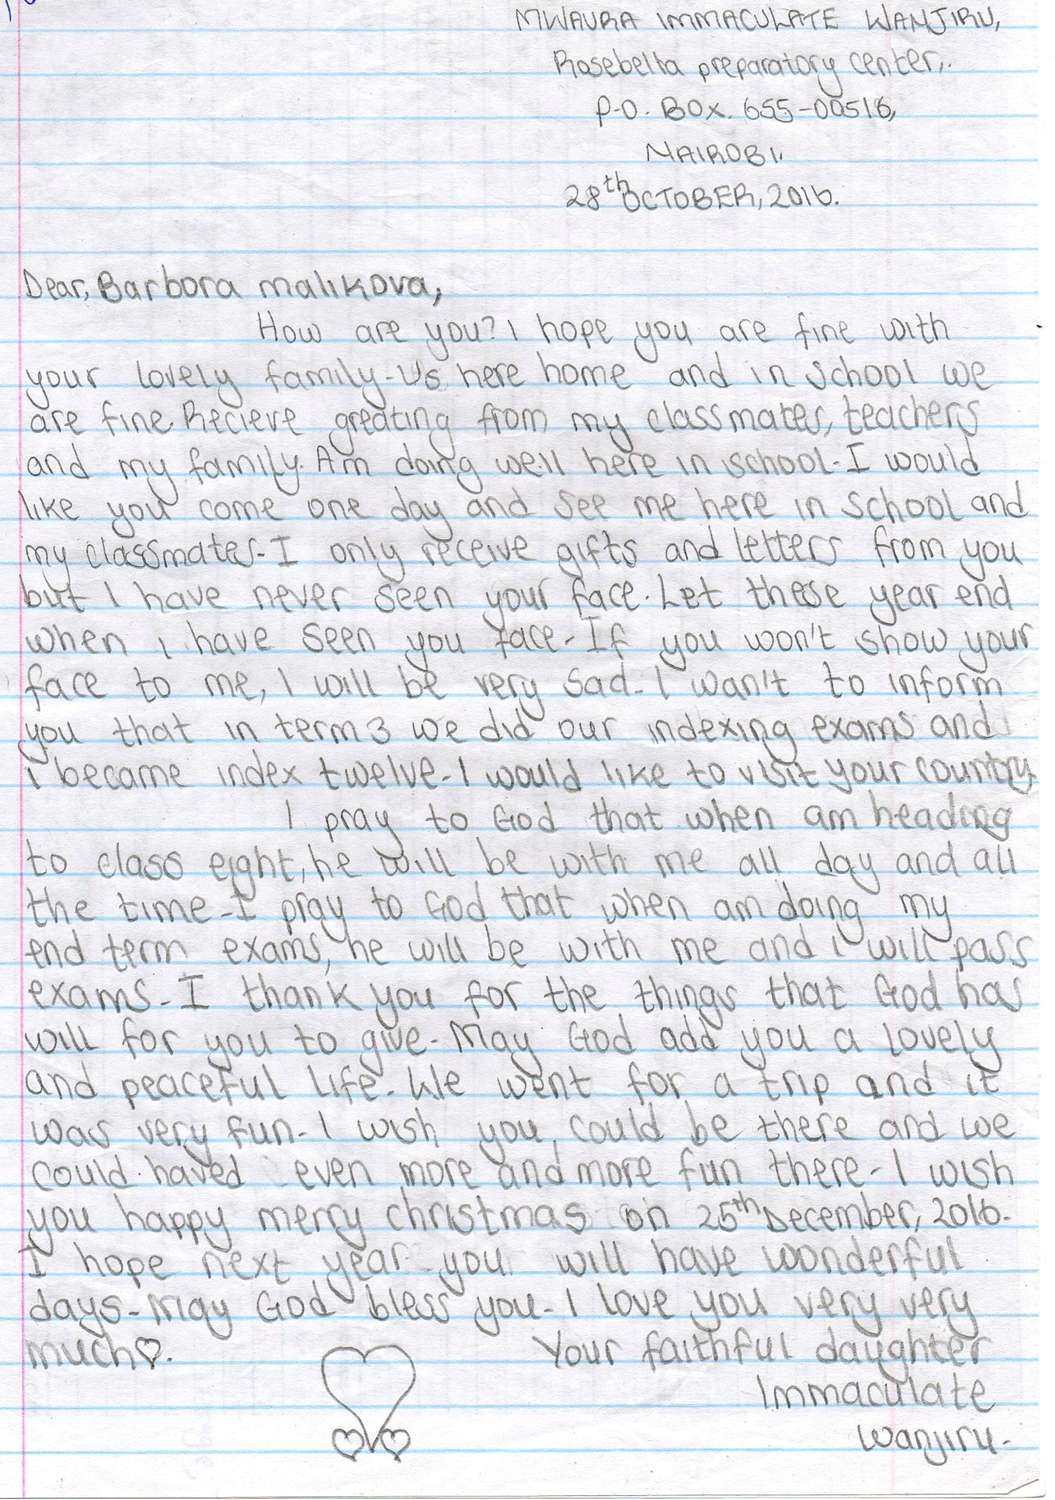 MWAURA IMMACULATE WANJIRU,
Rosebella preparatory center,.
P.O. BOX. 655-00516,
NAIROBI,
28th OCTOBER, 2016.
Dear, Barbora malikova,
How are you? I hope you are fine with
your lovely family-Us here home and in school we
are fine. Recieve greating from my classmates, teachers
and my family. Am doing well here in school-I would
like you come one day and see me here in school and
my classmates-I only receive gifts and letters from you
but I have never seen your face. Let these year end
when i have seen you face-If you won't show your
face to me, I will be very sad-I wan't to inform
you that in term 3 we did our indexing exams and
i became index twelve-I would like to visit your country.
I pray to God that when am heading
to class eight, he will be with me all day and all
the time-I pray to God that when am doing my
end term exams, he will be with me and i will pass
exams-I thank you for the things that God has
will for you to give-May God add you a lovely
and peaceful life-We went for a trip and it
was very fun-I wish you, could be there and we
could haved even more and more fun there-I wish
you happy merry christmas on 25th December, 2016-
I hope next year you will have wonderful
days-May God bless you-I love you very very
much♡.
Your faithful daughter
Immaculate
Wanjiru-